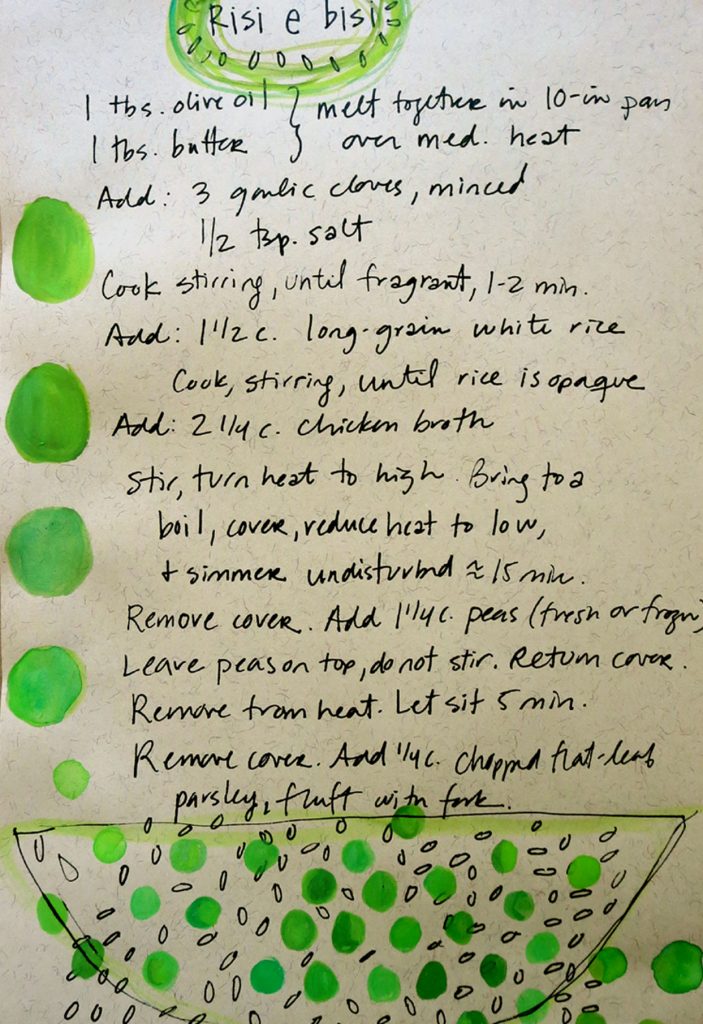 Risi e bisi
1 tbs. olive oil } melt together in 10-in pan
1 tbs. butter } over med. heat
Add: 3 garlic cloves, minced
1/2 tsp. salt
Cook stirring, until fragrant, 1-2 min.
Add: 1 1/2 c. long-grain white rice
Cook, stirring, until rice is opaque
Add: 2 1/4 c. chicken broth
Stir, turn heat to high. Bring to a
boil, cover, reduce heat to low,
+ simmer undisturbed ≈ 15 min.
Remove cover. Add 1 1/4 c. peas (fresh or frozen)
Leave peas on top, do not stir. Return cover.
Remove from heat. Let sit 5 min.
Remove cover. Add 1/4 c. chopped flat-leaf
parsley, fluff with fork.